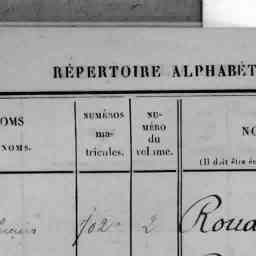 RÉPERTOIRE ALPHABÉT
OMS
NOMS.
NUMÉROS
ma-
tricules.
NU-
MÉRO
du
volume.
NO
(Il doit être é
102 2 Roua